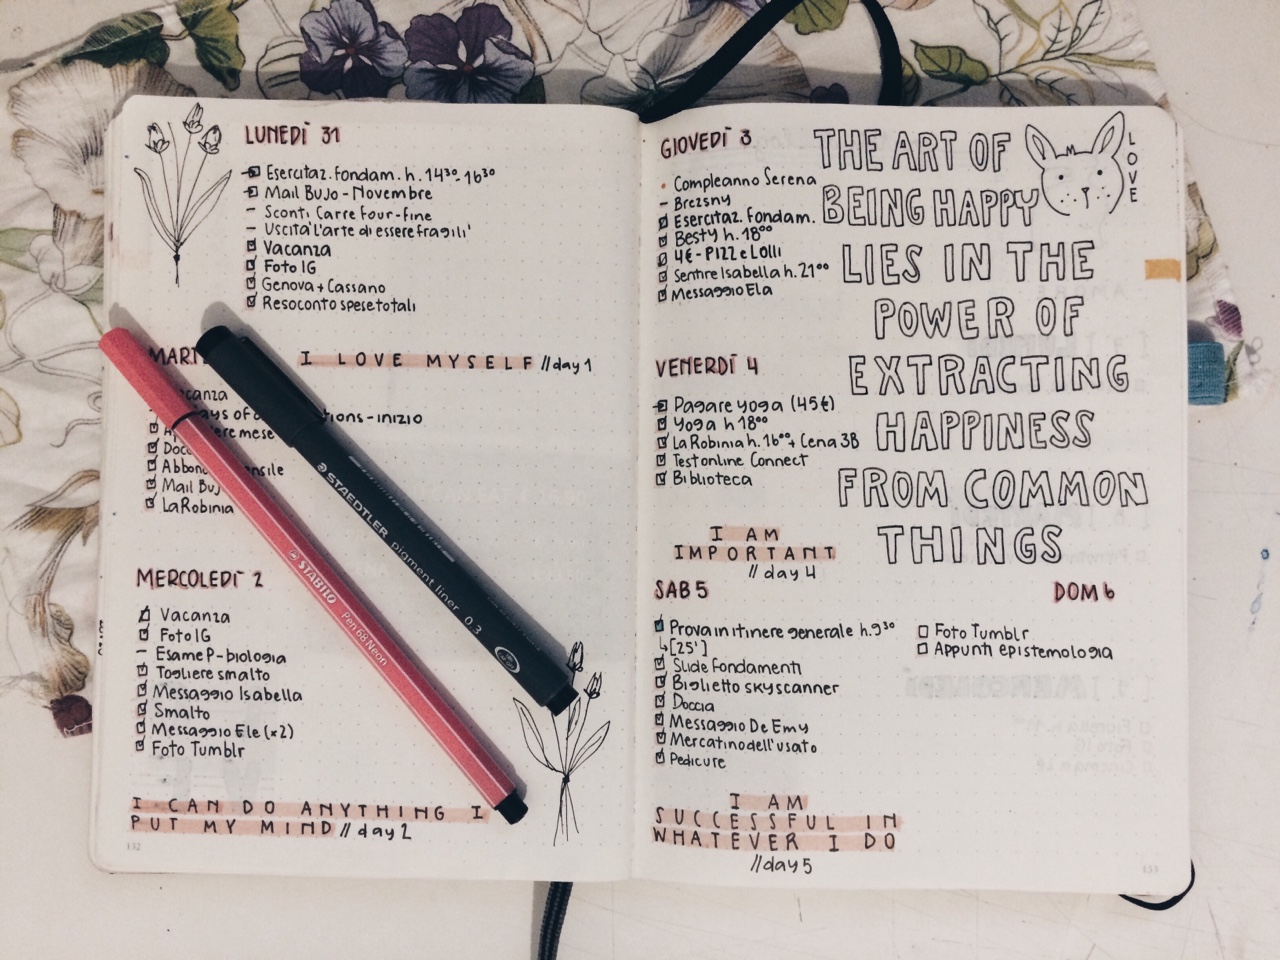 LUNEDÌ 31
Esercitaz. Fondam. h. 14³⁰-16³⁰
Mail BuJo - Novembre
– Sconti Carrefour - fine
– Uscita 'L'arte di essere fragili'
Vacanza
Foto IG
Genova + Cassano
Resoconto spese totali
I LOVE MYSELF // day 1
- inizio
mese
La Robinia
MERCOLEDÌ 2
Vacanza
Foto IG
– Esame P-biologia
Togliere smalto
Messaggio Isabella
Smalto
Messaggio Ele (x2)
Foto Tumblr
I CAN DO ANYTHING I
PUT MY MIND // day 2
132
STAEDTLER pigment liner 0.3
STABILO Pen 68 Neon
GIOVEDÌ 3
· Compleanno Serena
– Brezsny
Esercitaz. Fondam.
Besty h. 18⁰⁰
4€ - PIZZ e Lolli
Sentire Isabella h. 21⁰⁰
Messaggio Ela
THE ART OF
BEING HAPPY
LIES IN THE
POWER OF
EXTRACTING
HAPPINESS
FROM COMMON
THINGS
LOVE
VENERDÌ 4
Pagare yoga (45€)
Yoga h 18⁰⁰
La Robinia h. 16⁰⁰ + Cena 3B
Test online Connect
Biblioteca
I AM
IMPORTANT
// day 4
SAB 5
Prova in itinere generale h. 9³⁰
↳ [25']
Slide Fondamenti
Biglietto skyscanner
Doccia
Messaggio De Emy
Mercatino dell'usato
Pedicure
I AM
SUCCESSFUL IN
WHATEVER I DO
// day 5
DOM 6
Foto Tumblr
Appunti epistemologia
133